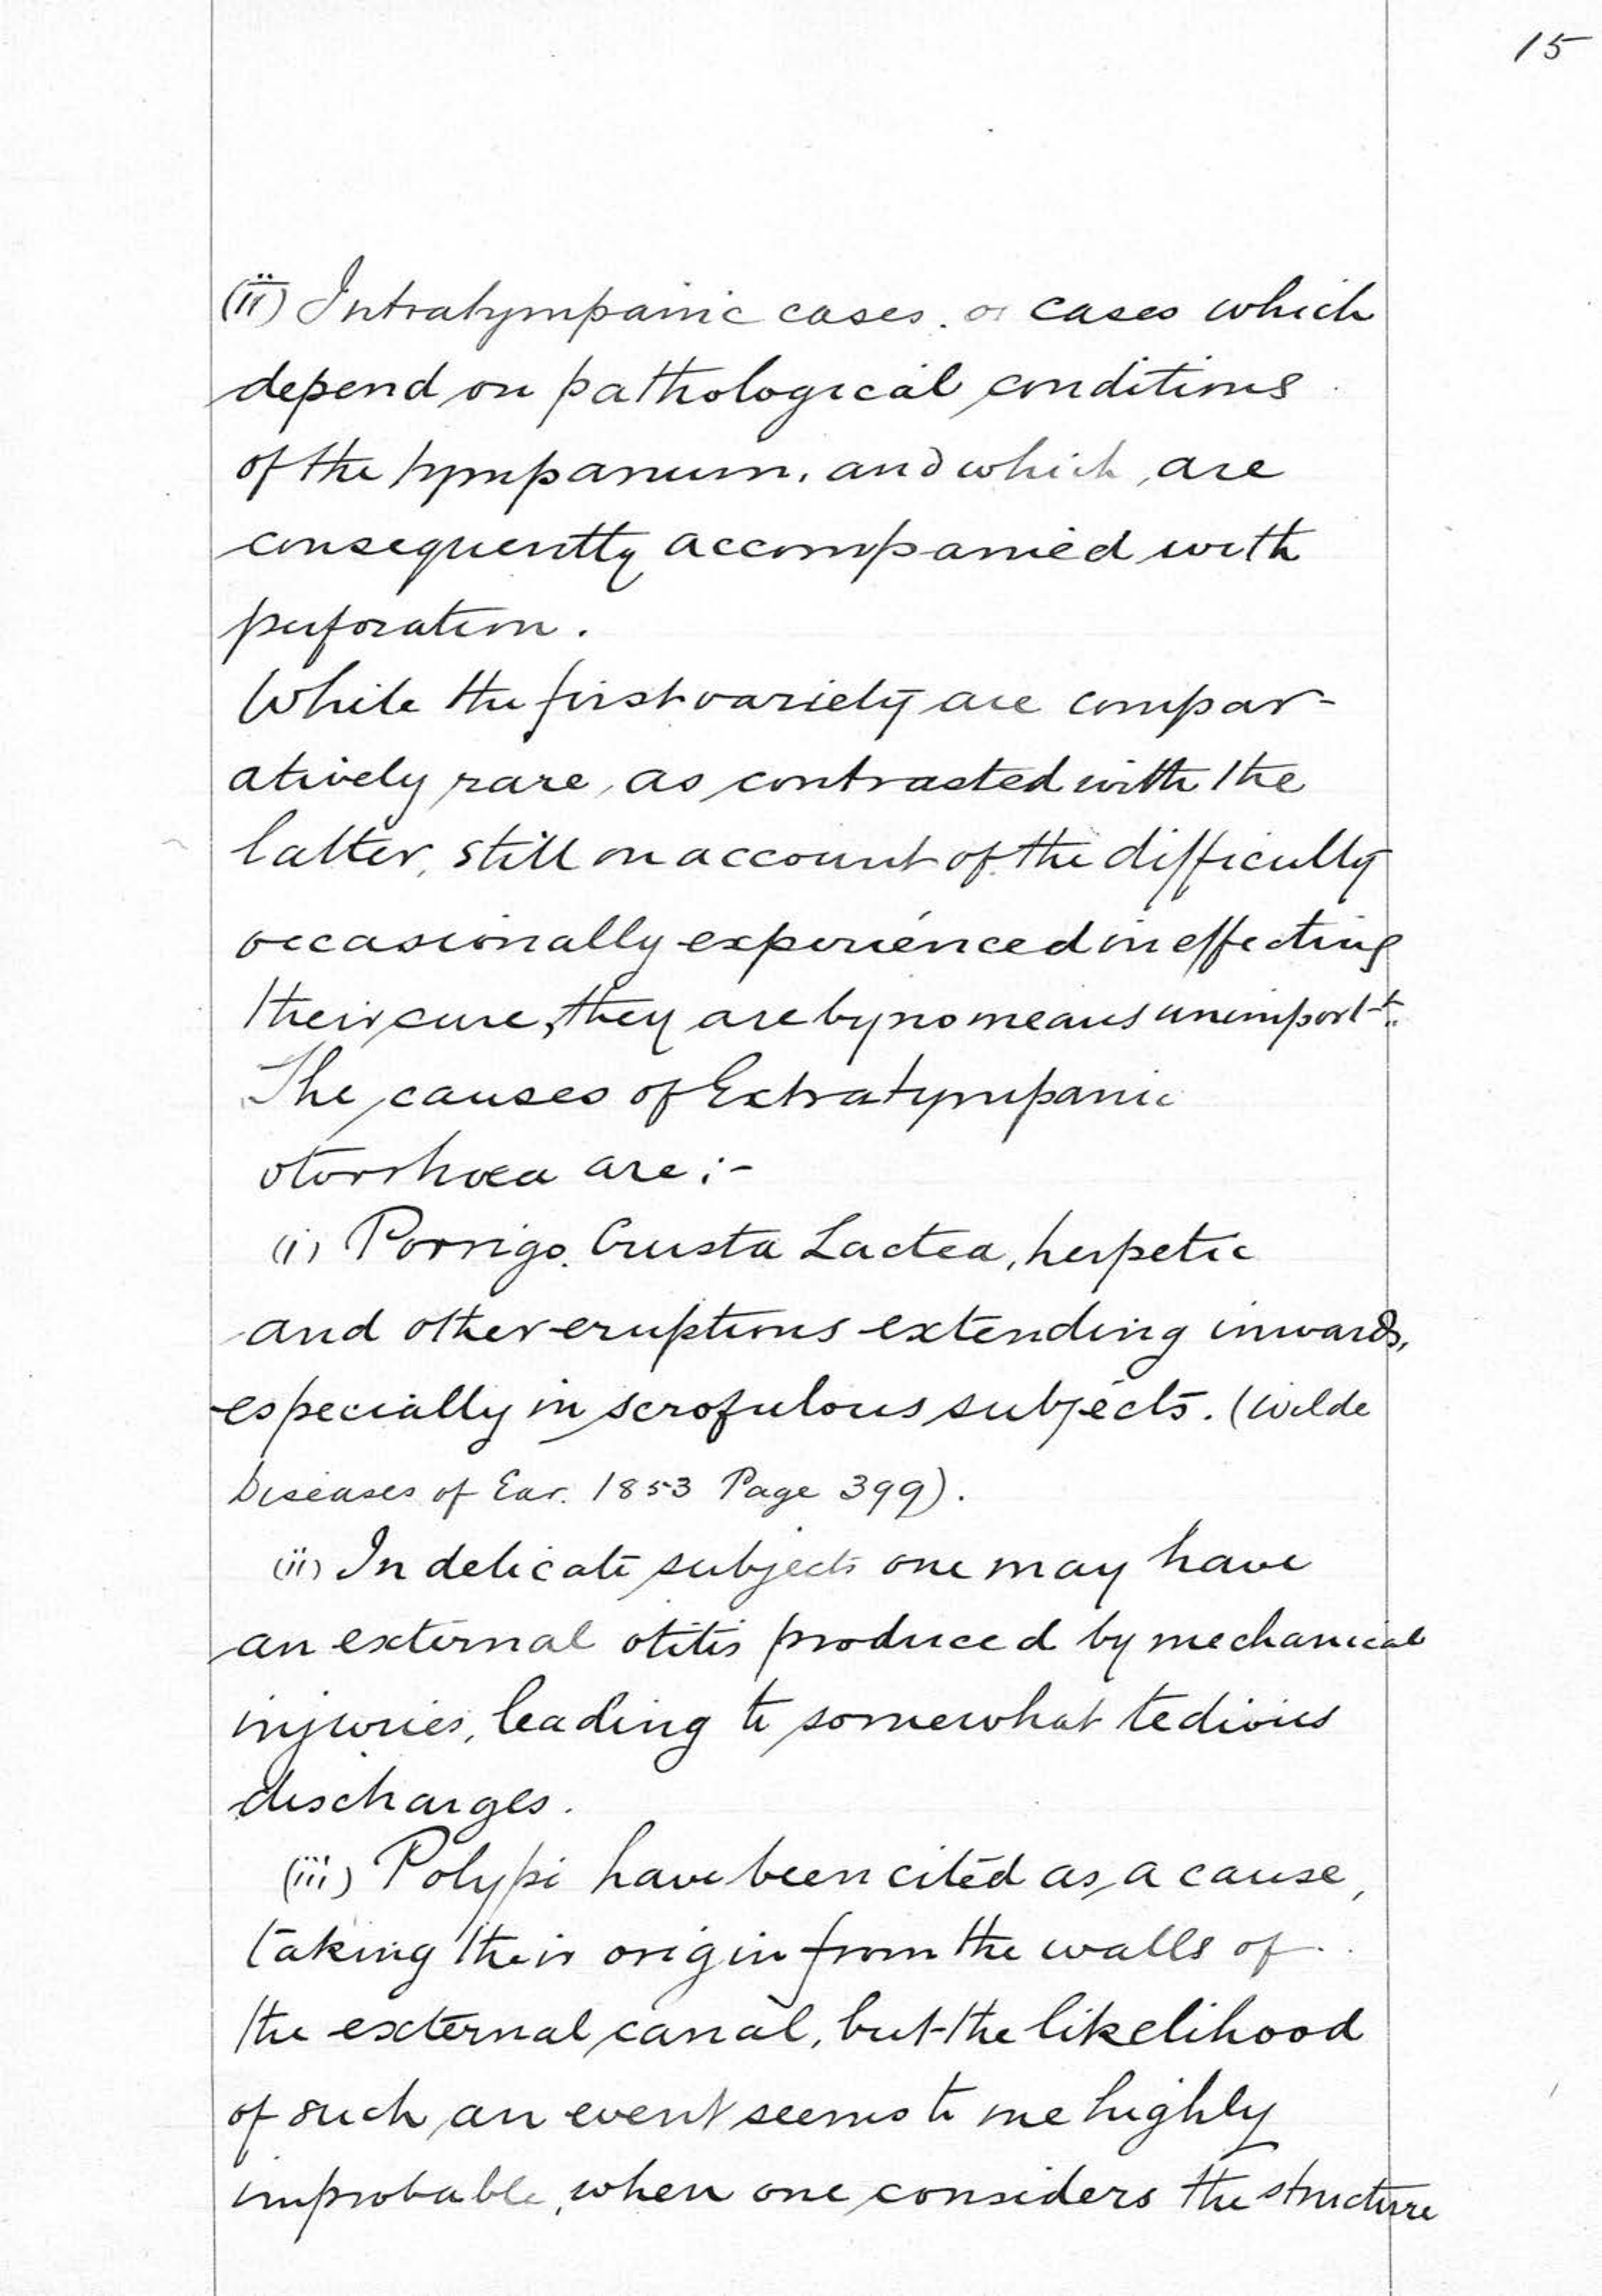 15
(ii) Intratympanic cases. or cases which
depend on pathological conditions
of the tympanum, and which, are
consequently accompanied with
perforation.
While the first variety are compar-
atively rare, as contrasted with the
latter, still on account of the difficulty
occasionally experienced in effecting
their cure, they are by no means unimport-t.
The causes of Extratympanic
otorrhœa are:-
(i) Porrigo. Crusta Lactea, herpetic
and other eruptions extending inwards,
especially in scrofulous subjects. (Wilde
Diseases of Ear. 1853 Page 399).
(ii) In delicate subjects one may have
an external otitis produced by mechanical
injuries, leading to somewhat tedious
discharges.
(iii) Polypi have been cited as a cause,
taking their origin from the walls of
the external canal, but the likelihood
of such an event seems to me highly
improbable, when one considers the structure